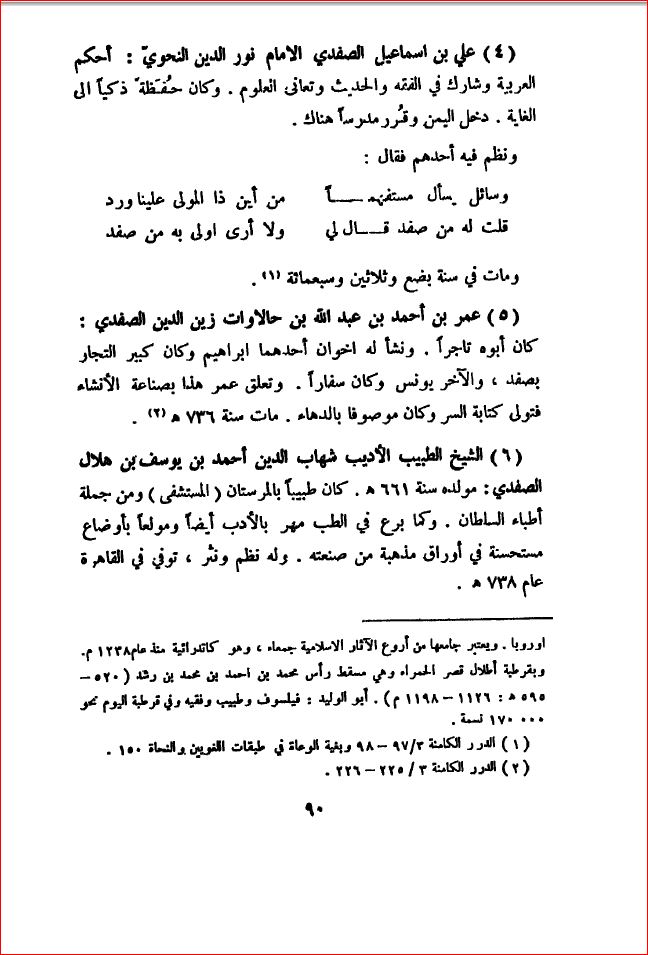 (٤) علي بن اسماعيل الصفدي الامام نور الدين النحويّ : أحكم
العربية وشارك في الفقه والحديث وتعانى العلوم . وكان حُفَظَة ً ذكياً الى
الغاية . دخل اليمن وقُرر مدرساً هناك .
ونظم فيه أحدهم فقال :
وسائل يسأل مستفهمـــــاً من أين ذا المولى علينا ورد
قلت له من صفد قـــال لي ولا أرى اولى به من صفد
ومات في سنة بضع وثلاثين وسبعمائة (١) .
(٥) عمر بن أحمد بن عبد الله بن حالاوات زين الدين الصفدي :
كان أبوه تاجراً . ونشأ له اخوان أحدهما ابراهيم وكان كبير التجار
بصفد ، والآخر يونس وكان سفاراً . وتعلق عمر هذا بصناعة الأنشاء
فتولى كتابة السر وكان موصوفا بالدهاء . مات سنة ٧٣٦ ه (٢) .
(٦) الشيخ الطبيب الأديب شهاب الدين أحمد بن يوسف بن هلال
الصفدي : مولده سنة ٦٦١ ه . كان طبيباً بالمرستان (المستشفى) ومن جملة
أطباء السلطان . وكما برع في الطب مهر بالأدب أيضاً ومولعاً بأوضاع
مستحسنة في أوراق مذهبة من صنعته . وله نظم ونثر ، توفي في القاهرة
عام ٧٣٨ ه .
اوروبا . ويعتبر جامعها من أروع الآثار الاسلامية جمعاء ، وهو كاتدرائية منذ عام ١٢٣٨ م.
وبقرطبة أطلال قصر الحمراء وهي مسقط رأس محمد بن احمد بن محمد بن رشد ( ٥٢٠ –
٥٩٥ ه : ١١٢٦ – ١١٩٨ م ) . أبو الوليد : فيلسوف وطبيب وفقيه وفي قرطبة اليوم نحو
١٧٠ ٠٠٠ نسمة .
( ١ ) الدرر الكامنة ٩٧/٣ – ٩٨ وبغية الوعاة في طبقات اللغويين والنحاة ١٥٠ .
( ٢ ) الدرر الكامنة ٣ / ٢٢٥ – ٢٢٦ .
٩٠